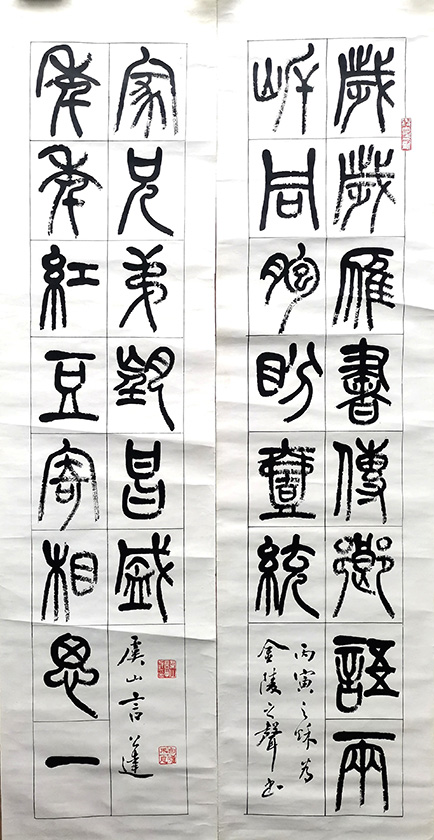 歲歲雁書傳鄉語兩
岸同胞盼臺統
丙寅之秋為
金陵之聲書
年年紅豆寄相思一
家兄弟望昌盛
虞山言公達